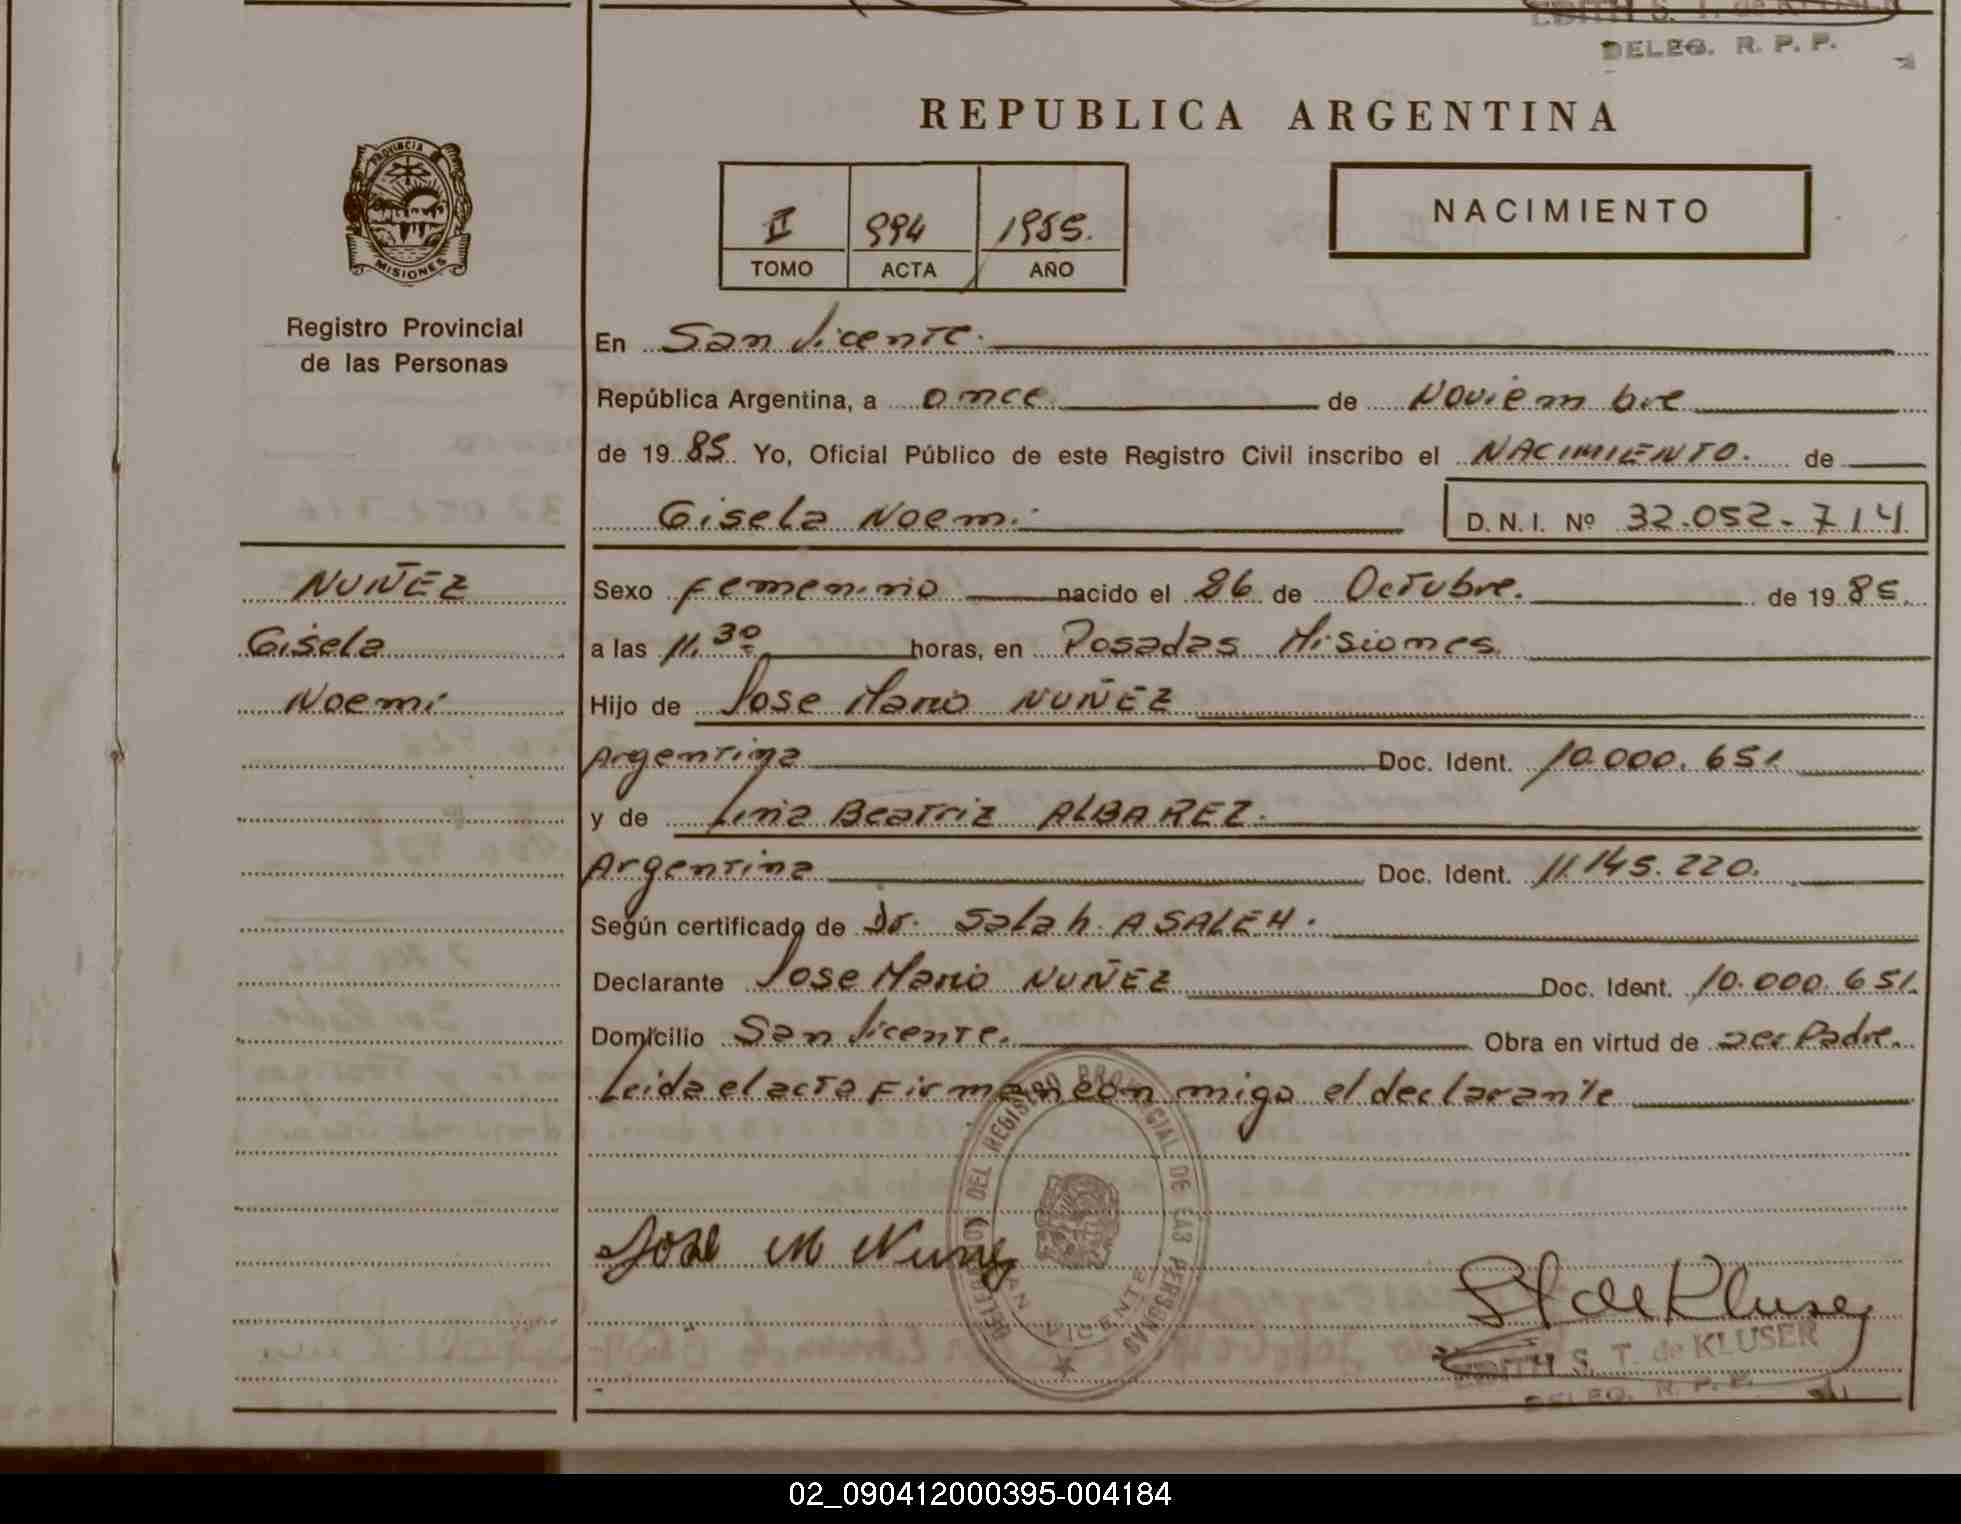 EDITH S. T. de KLUSER
DELEG. R. P. P.
REPUBLICA ARGENTINA
PROVINCIA
MISIONES
II 994 1985.
TOMO ACTA AÑO
NACIMIENTO
Registro Provincial
de las Personas
En San Vicente.
República Argentina, a once de Noviembre
de 19 85 Yo, Oficial Público de este Registro Civil inscribo el NACIMIENTO. de
Gisela Noemi. D. N. I. Nº 32.052.714
NUÑEZ
Gisela
Noemi
Sexo Femenino nacido el 26 de Octubre. de 19 85.
a las 11.30 horas, en Posadas Misiones
Hijo de Jose Mario NUÑEZ
Argentina Doc. Ident. 10.000.651
y de Lina Beatriz ALBAREZ.
Argentina Doc. Ident. 11.145.220.
Según certificado de Dr. Salah. ASALEH.
Declarante Jose Mario NUÑEZ Doc. Ident. 10.000.651.
Domicilio San Vicente. Obra en virtud de ser Padre.
Leida el acta Firman con migo el declarante
DELEGACION DEL REGISTRO PROVINCIAL DE LAS PERSONAS
SAN VICENTE
Jose M Nuñez
St de Kluser
EDITH S. T. de KLUSER
DELEG. R. P. P.
02_090412000395-004184